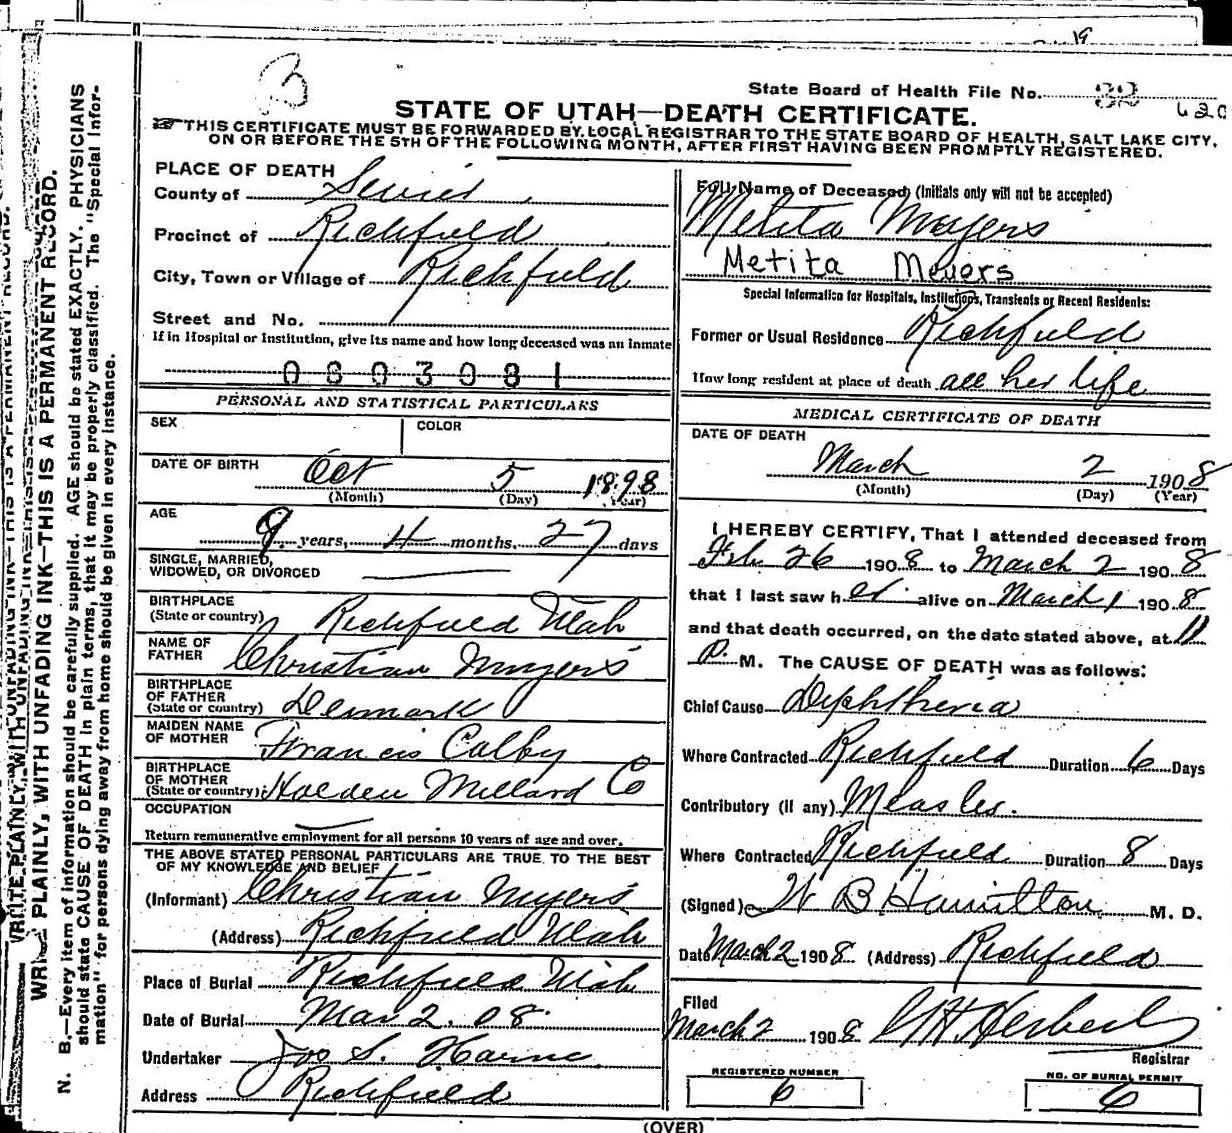 19
3
State Board of Health File No. 32
620
STATE OF UTAH—DEATH CERTIFICATE.
THIS CERTIFICATE MUST BE FORWARDED BY LOCAL REGISTRAR TO THE STATE BOARD OF HEALTH, SALT LAKE CITY,
ON OR BEFORE THE 5TH OF THE FOLLOWING MONTH, AFTER FIRST HAVING BEEN PROMPTLY REGISTERED.
WRITE PLAINLY, WITH UNFADING INK—THIS IS A PERMANENT RECORD.
N. B.—Every item of information should be carefully supplied. AGE should be stated EXACTLY. PHYSICIANS
should state CAUSE OF DEATH in plain terms, that it may be properly classified. The "Special Infor-
mation" for persons dying away from home should be given in every instance.
PLACE OF DEATH
County of Sevier
Precinct of Richfield
City, Town or Village of Richfield
Street and No.
If in Hospital or Institution, give its name and how long deceased was an inmate
0803081
PERSONAL AND STATISTICAL PARTICULARS
SEX COLOR
DATE OF BIRTH Oct 5 1898
(Month) (Day) (Year)
AGE
9 years, 4 months, 27 days
SINGLE, MARRIED,
WIDOWED, OR DIVORCED
BIRTHPLACE
(State or country) Richfield Utah
NAME OF
FATHER Christian Myers
BIRTHPLACE
OF FATHER
(State or country) Denmark
MAIDEN NAME
OF MOTHER Francis Colby
BIRTHPLACE
OF MOTHER
(State or country) Holden Millard Co
OCCUPATION
Return remunerative employment for all persons 10 years of age and over.
THE ABOVE STATED PERSONAL PARTICULARS ARE TRUE TO THE BEST
OF MY KNOWLEDGE AND BELIEF
(Informant) Christian Myers
(Address) Richfield Utah
Place of Burial Richfield Utah
Date of Burial Mar 2. 08
Undertaker Jos S. Horne
Address Richfield
Full Name of Deceased (Initials only will not be accepted)
Metita Meyers
Metita Meyers
Special Information for Hospitals, Institutions, Transients or Recent Residents:
Former or Usual Residence Richfield
How long resident at place of death all her life
MEDICAL CERTIFICATE OF DEATH
DATE OF DEATH
March 2 1908
(Month) (Day) (Year)
I HEREBY CERTIFY, That I attended deceased from
Feb 26 1908 to March 2 1908
that I last saw her alive on March 1 1908
and that death occurred, on the date stated above, at 11
P. M. The CAUSE OF DEATH was as follows:
Chief Cause Diphtheria
Where Contracted Richfield Duration 6 Days
Contributory (if any) Measles.
Where Contracted Richfield Duration 8 Days
(Signed) W B Hamilton M. D.
Date March 2 1908 (Address) Richfield
Filed
March 2 1908 Herbert
Registrar
REGISTERED NUMBER
6
NO. OF BURIAL PERMIT
6
(OVER)